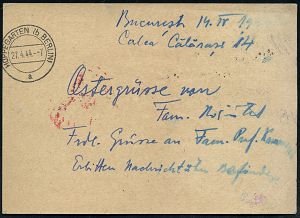 Bucuresti 14. IV 19
Calea Călărași 84
HOPPEGARTEN (b BERLIN)
27.4.44.-7
a
Ostergrüsse von
Fam.
Frdl. Grüsse an Fam. Prof.
Erbitten Nachricht über Befinden